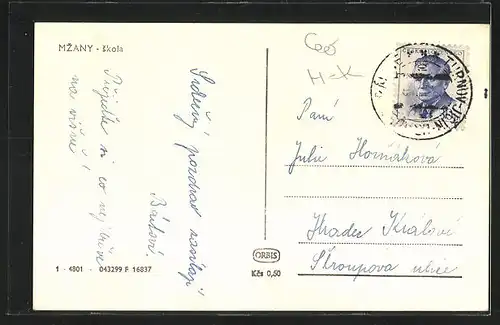 MŽANY - škola
Přijeďte si co nejdříve
na višně!
Srdečný pozdrav zasílají
Bártovi.
1 - 4801 - 043299 F 16837
ORBIS
Kčs 0,50
H-K
TURNOV-JIČÍN
Paní
Julie Horňáková
Hradec Králové
Štroupova ulice